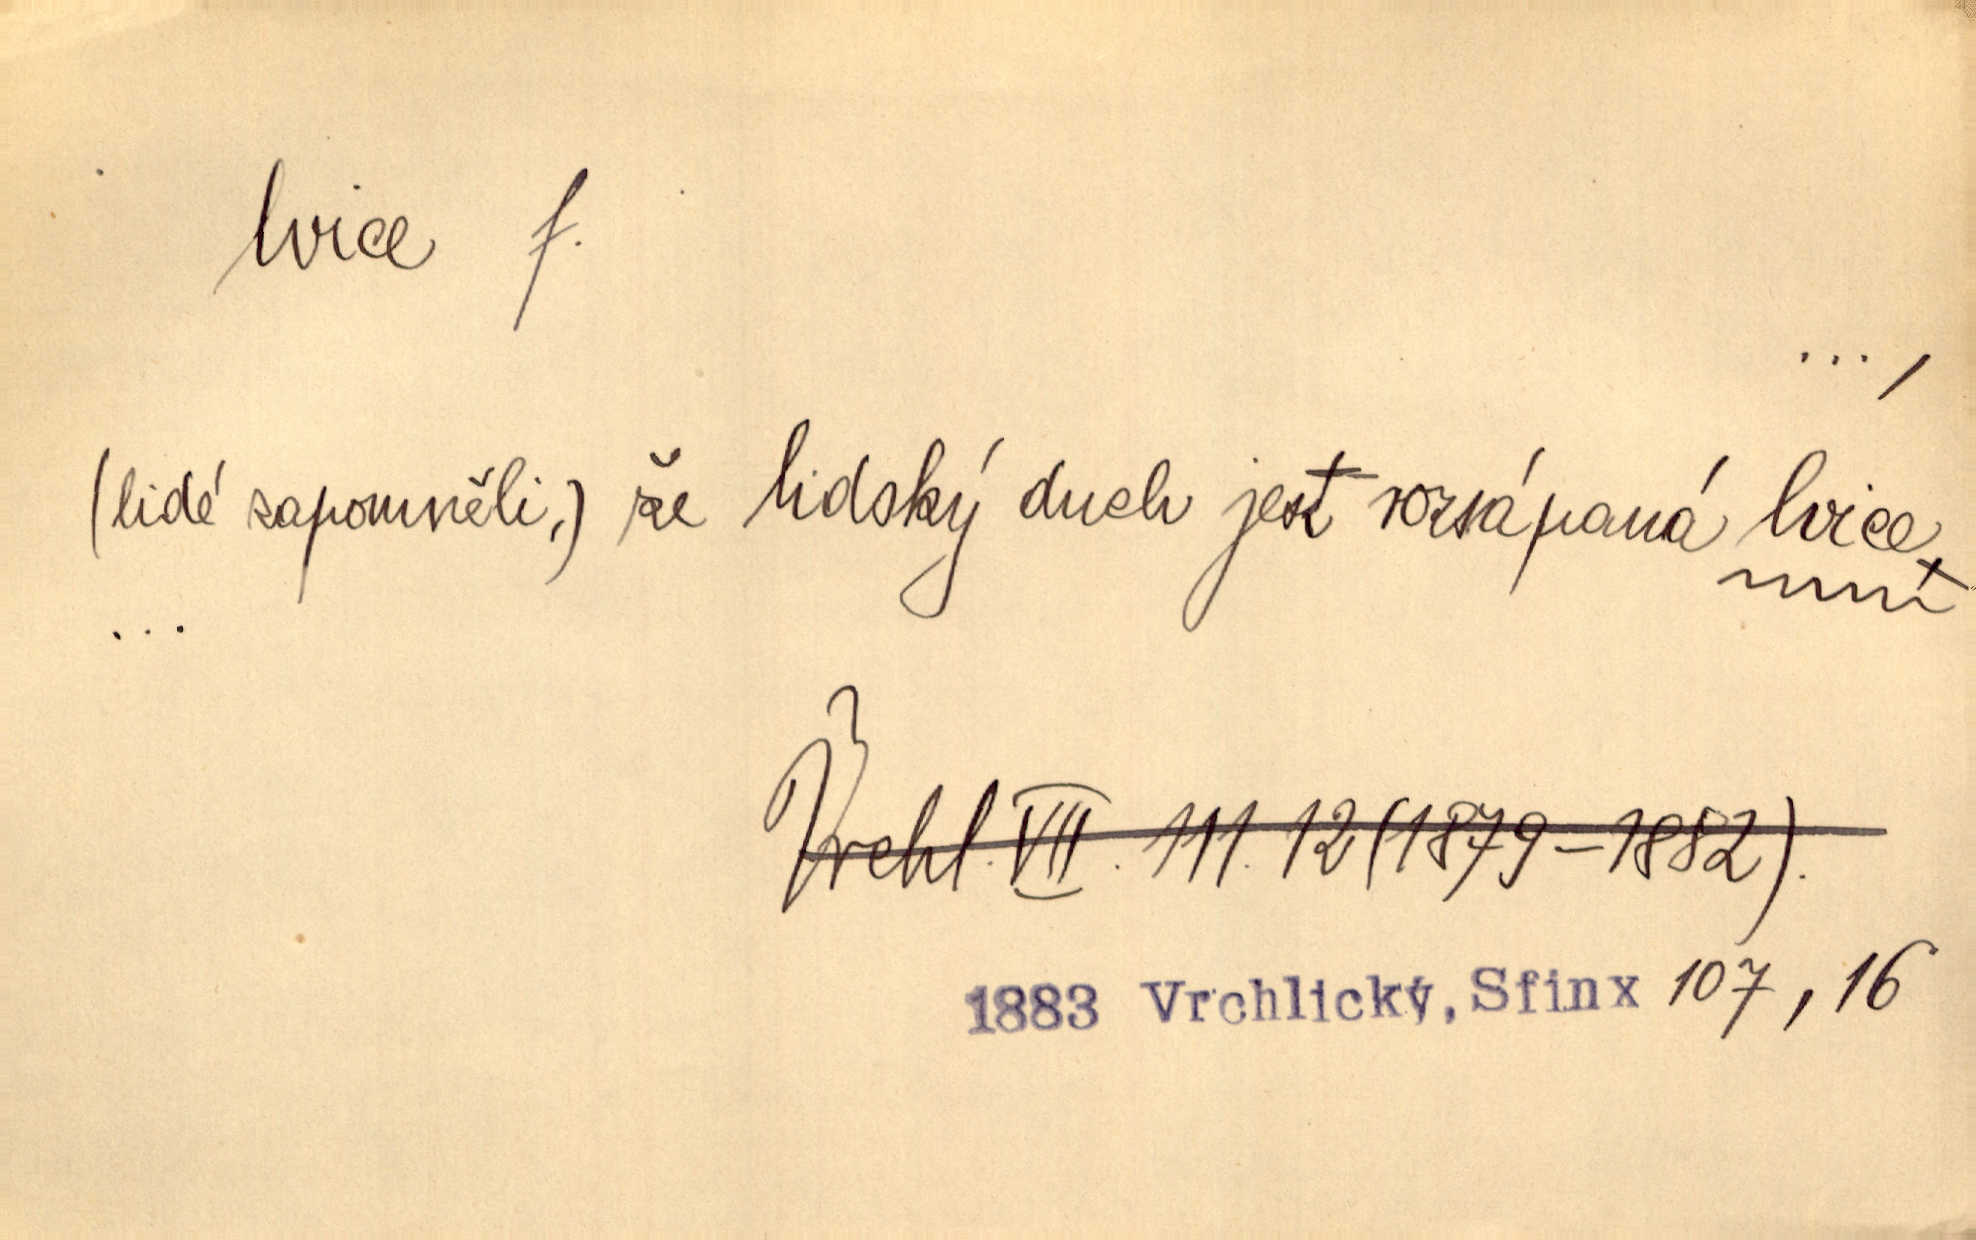 lvice f.
...,
(lidé zapomněli,) že lidský duch jest rozsápaná lvice,
...
Vrchl. VII. 111. 12 (1879–1882).
1883 Vrchlický, Sfinx 107, 16